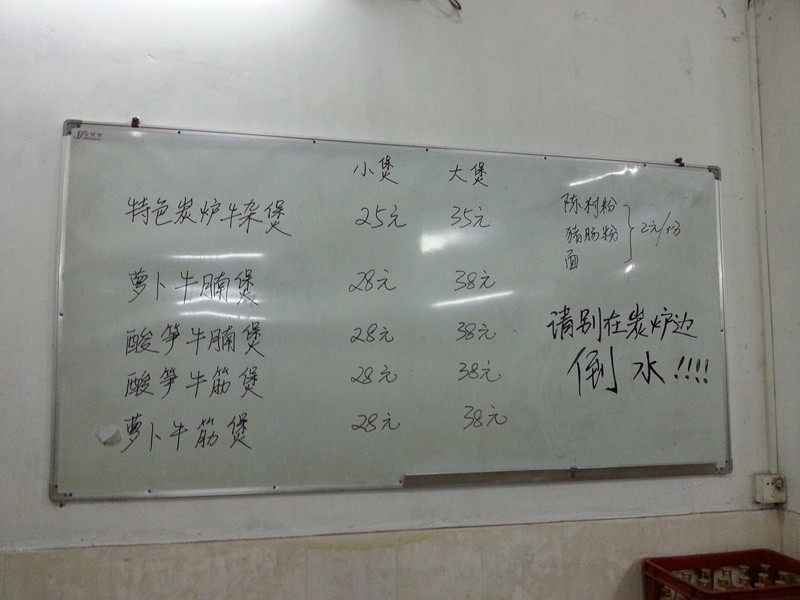 小煲 大煲
特色炭炉牛杂煲 25元 35元
萝卜牛腩煲 28元 38元
酸笋牛腩煲 28元 38元
酸笋牛筋煲 28元 38元
萝卜牛筋煲 28元 38元
陈村粉
猪肠粉
面
2元/份
请别在炭炉边
倒水!!!!